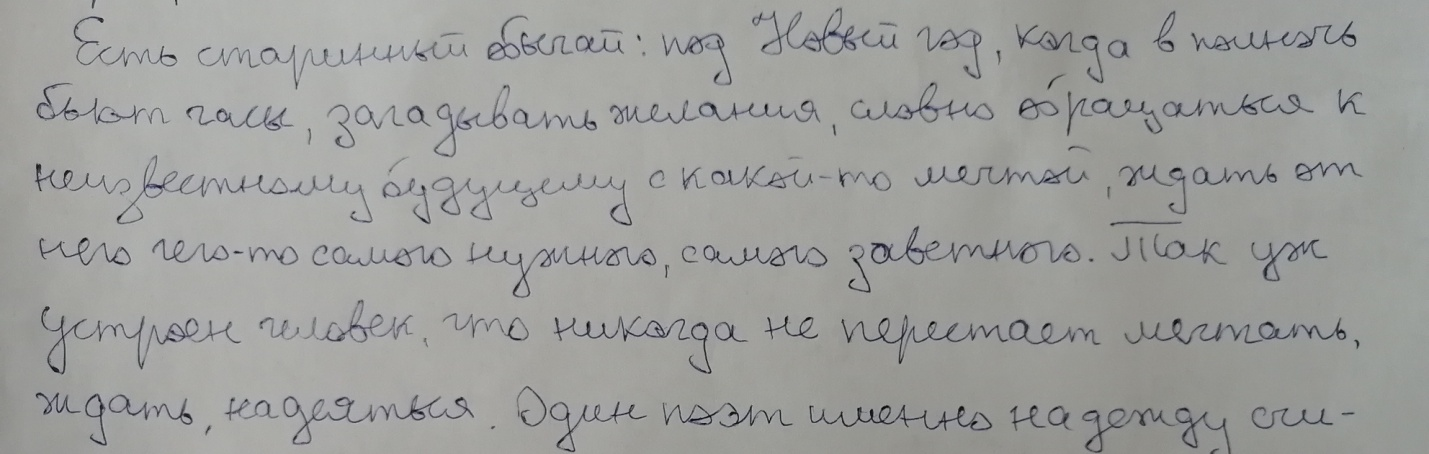 Есть старинный обычай: под Новый год, когда в полночь
бьют часы, загадывать желания, словно обращаться к
неизвестному будущему с какой-то мечтой, ждать от
него чего-то самого нужного, самого заветного. Так уж
устроен человек, что никогда не перестает мечтать,
ждать, надеяться. Один поэт именно надежду счи-